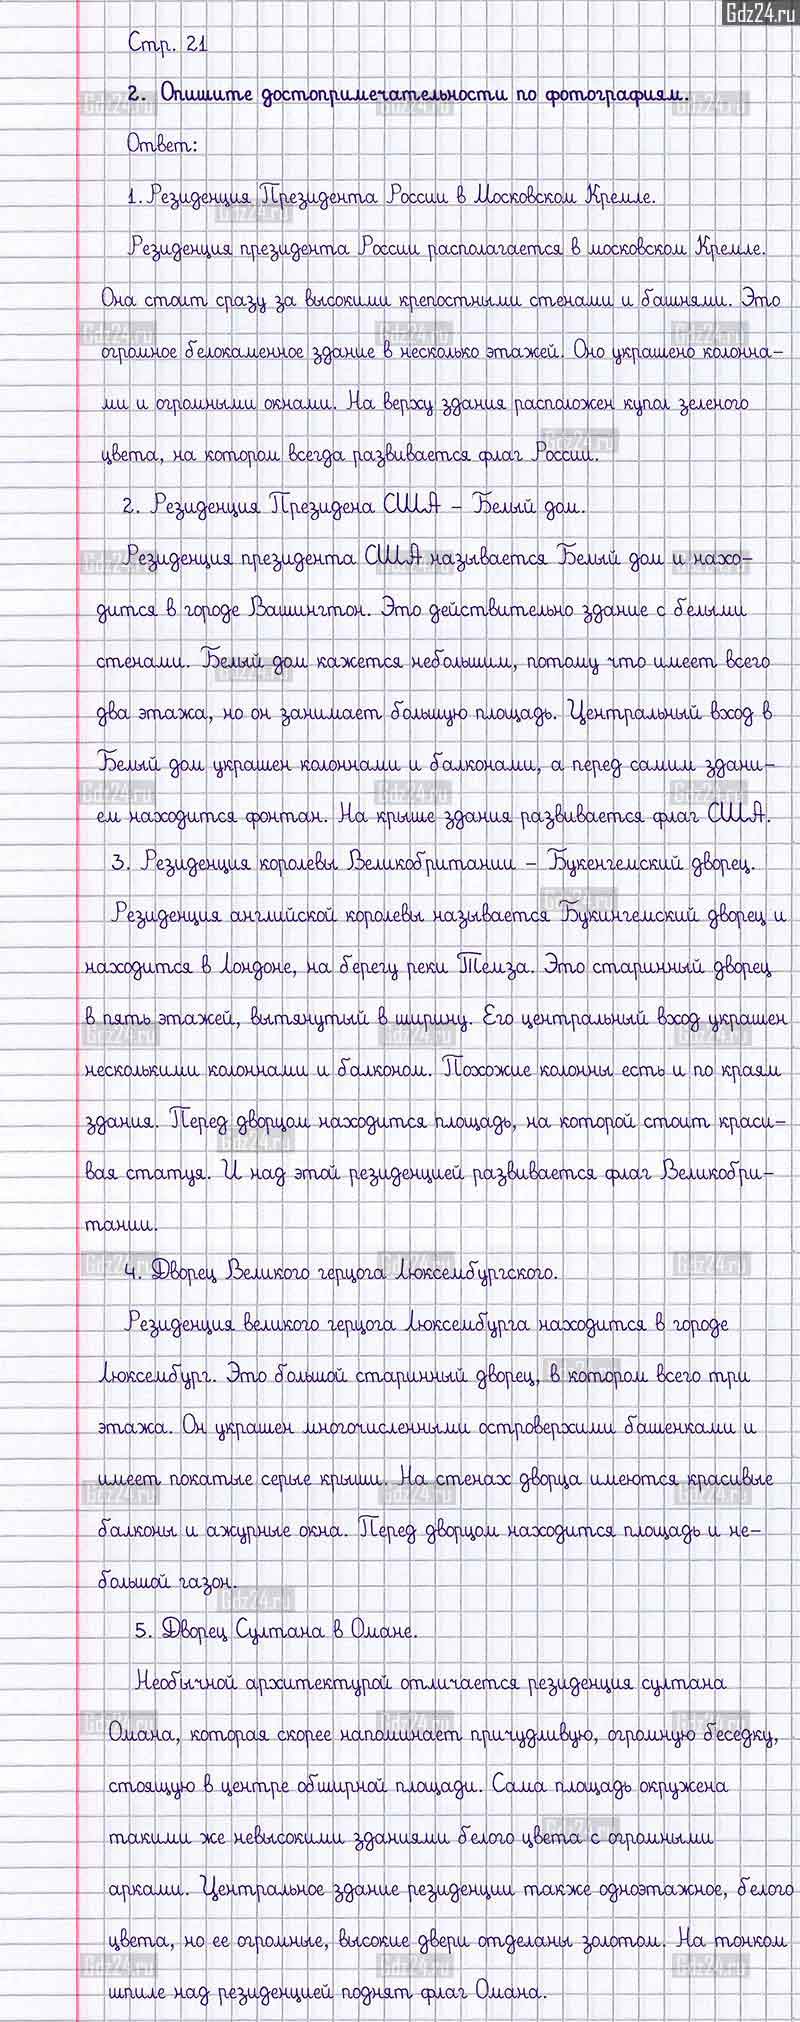 Gdz24.ru
Стр. 21
2. Опишите достопримечательности по фотографиям.
Ответ:
1. Резиденция Президента России в Московском Кремле.
Резиденция президента России располагается в московском Кремле.
Она стоит сразу за высокими крепостными стенами и башнями. Это
огромное белокаменное здание в несколько этажей. Оно украшено колонна-
ми и огромными окнами. На верху здания расположен купол зеленого
цвета, на котором всегда развивается флаг России.
2. Резиденция Президена США – Белый дом.
Резиденция президента США называется Белый дом и нахо-
дится в городе Вашингтон. Это действительно здание с белыми
стенами. Белый дом кажется небольшим, потому что имеет всего
два этажа, но он занимает большую площадь. Центральный вход в
Белый дом украшен колоннами и балконами, а перед самим здани-
ем находится фонтан. На крыше здания развивается флаг США.
3. Резиденция королевы Великобритании – Букенгемский дворец.
Резиденция английской королевы называется Букингемский дворец и
находится в Лондоне, на берегу реки Темза. Это старинный дворец
в пять этажей, вытянутый в ширину. Его центральный вход украшен
несколькими колоннами и балконом. Похожие колонны есть и по краям
здания. Перед дворцом находится площадь, на которой стоит краси-
вая статуя. И над этой резиденцией развивается флаг Великобри-
тании.
4. Дворец Великого герцога Люксембургского.
Резиденция великого герцога Люксембурга находится в городе
Люксембург. Это большой старинный дворец, в котором всего три
этажа. Он украшен многочисленными островерхими башенками и
имеет покатые серые крыши. На стенах дворца имеются красивые
балконы и ажурные окна. Перед дворцом находится площадь и не-
большой газон.
5. Дворец Султана в Омане.
Необычной архитектурой отличается резиденция султана
Омана, которая скорее напоминает причудливую, огромную беседку,
стоящую в центре обширной площади. Сама площадь окружена
такими же невысокими зданиями белого цвета с огромными
арками. Центральное здание резиденции также одноэтажное, белого
цвета, но ее огромные, высокие двери отделаны золотом. На тонком
шпиле над резиденцией поднят флаг Омана.